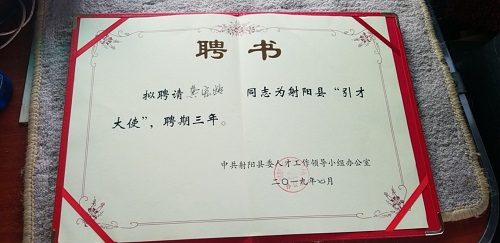 聘书
拟聘请 同志为射阳县“引才
大使”，聘期三年。
中共射阳县委人才工作领导小组办公室
二〇一九年七月